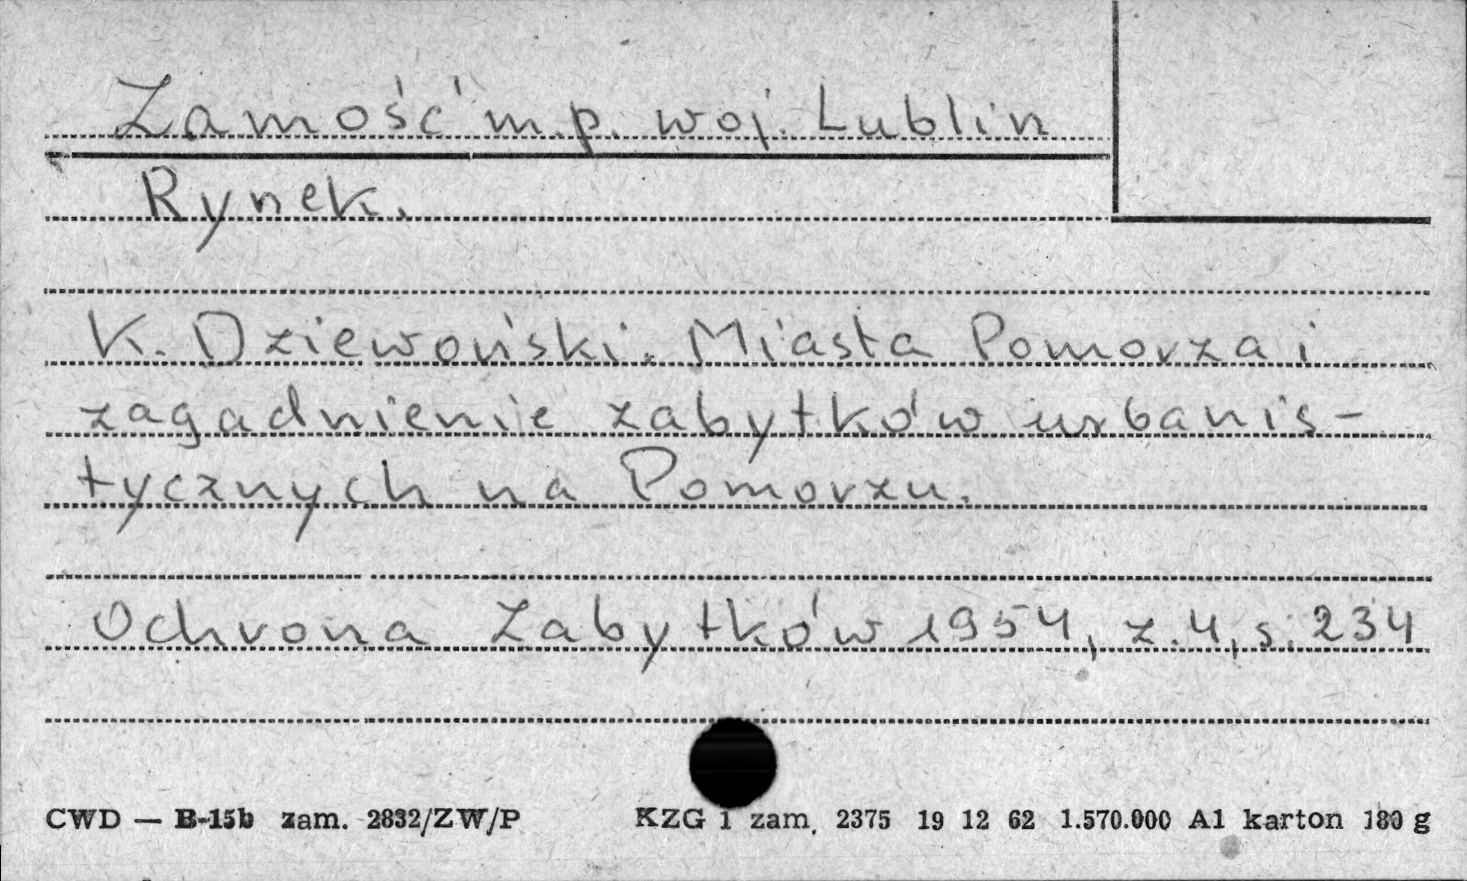 Zamość m.p. woj. Lublin
Rynek.
K. Dziewoński. Miasta Pomorza i
zagadnienie zabytków urbanis-
tycznych na Pomorzu.
Ochrona Zabytków 1954, z.4, s. 234
CWD — B-15b zam. 2832/ZW/P KZG 1 zam. 2375 19 12 62 1.570.000 A1 karton 180 g